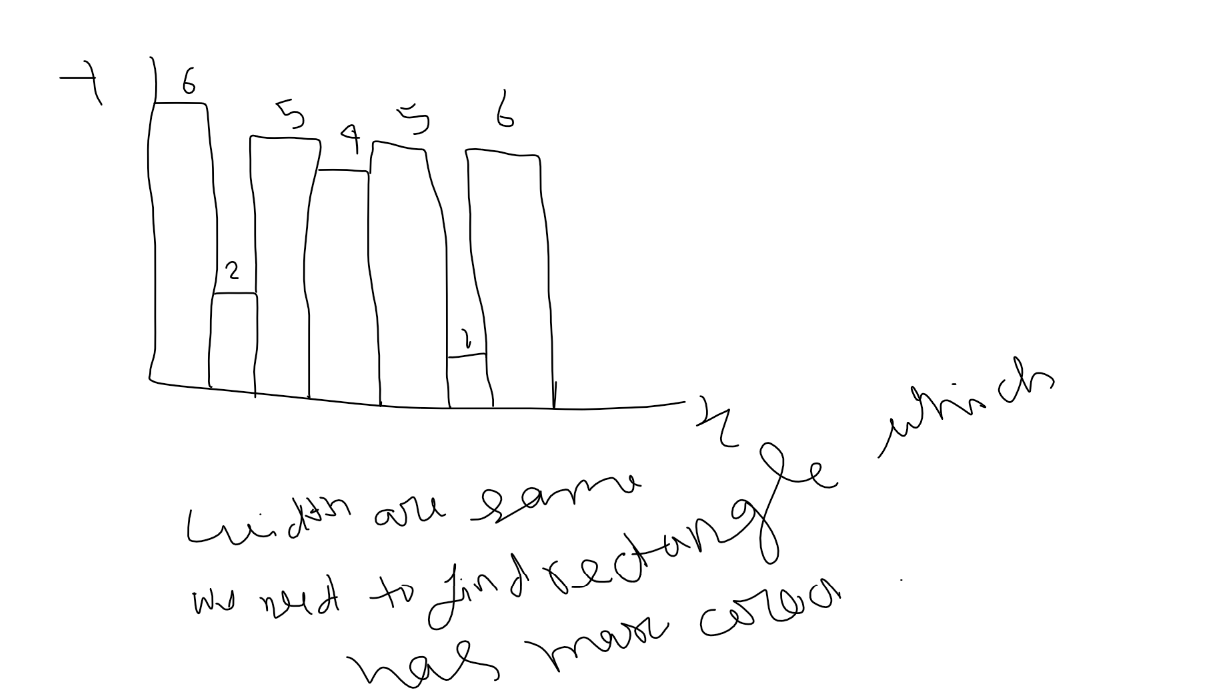 6
5
4
5
6
2
1
x
width are same
we need to find rectangle which
has max area